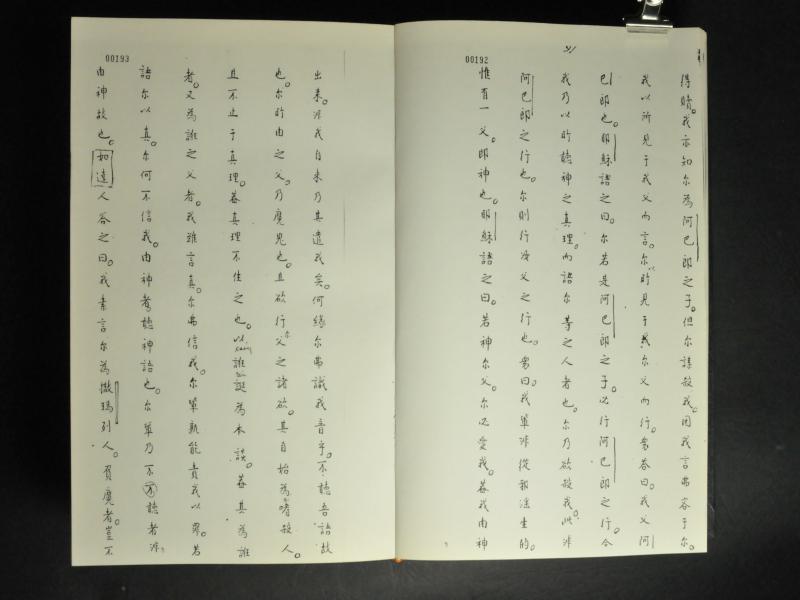 00192
得贖。我亦知尔為阿巴郎之子。但尔謀殺我。因我言弗容于尔。
我以所見于我父而言。尔以所見于尔父而行。衆答曰。我父阿
巴郎也。耶穌語之曰。尔若是阿巴郎之子。必行阿巴郎之行。今
我乃以所聽神之真理。而語尔等之人者也。尔乃欲殺我。此非
阿巴郎之行也。尔則行汝父之行也。衆曰。我輩非從邪淫生的。
惟有一父。即神也。耶穌語之曰。若神尔父。尔必愛我。蓋我由神
00193
出來。非我自来乃其遣我矣。何緣尔弗識我音乎。不聽吾語故
也。尔所由之父。乃魔鬼也。且欲行尔父之諸欲。其自始為嗜殺人。
且不止于真理。蓋真理不住之也。以謊誕為本談。蓋其為謊
者。又為謊之父者。我雖言真。尔弗信我。尔輩孰能責我以罪。若
語尔以真。尔何不信我。由神者聽神語也。尔輩乃不聽者非
由神故也。如達人答之曰。我素言尔為撒瑪列人。負魔者。豈不